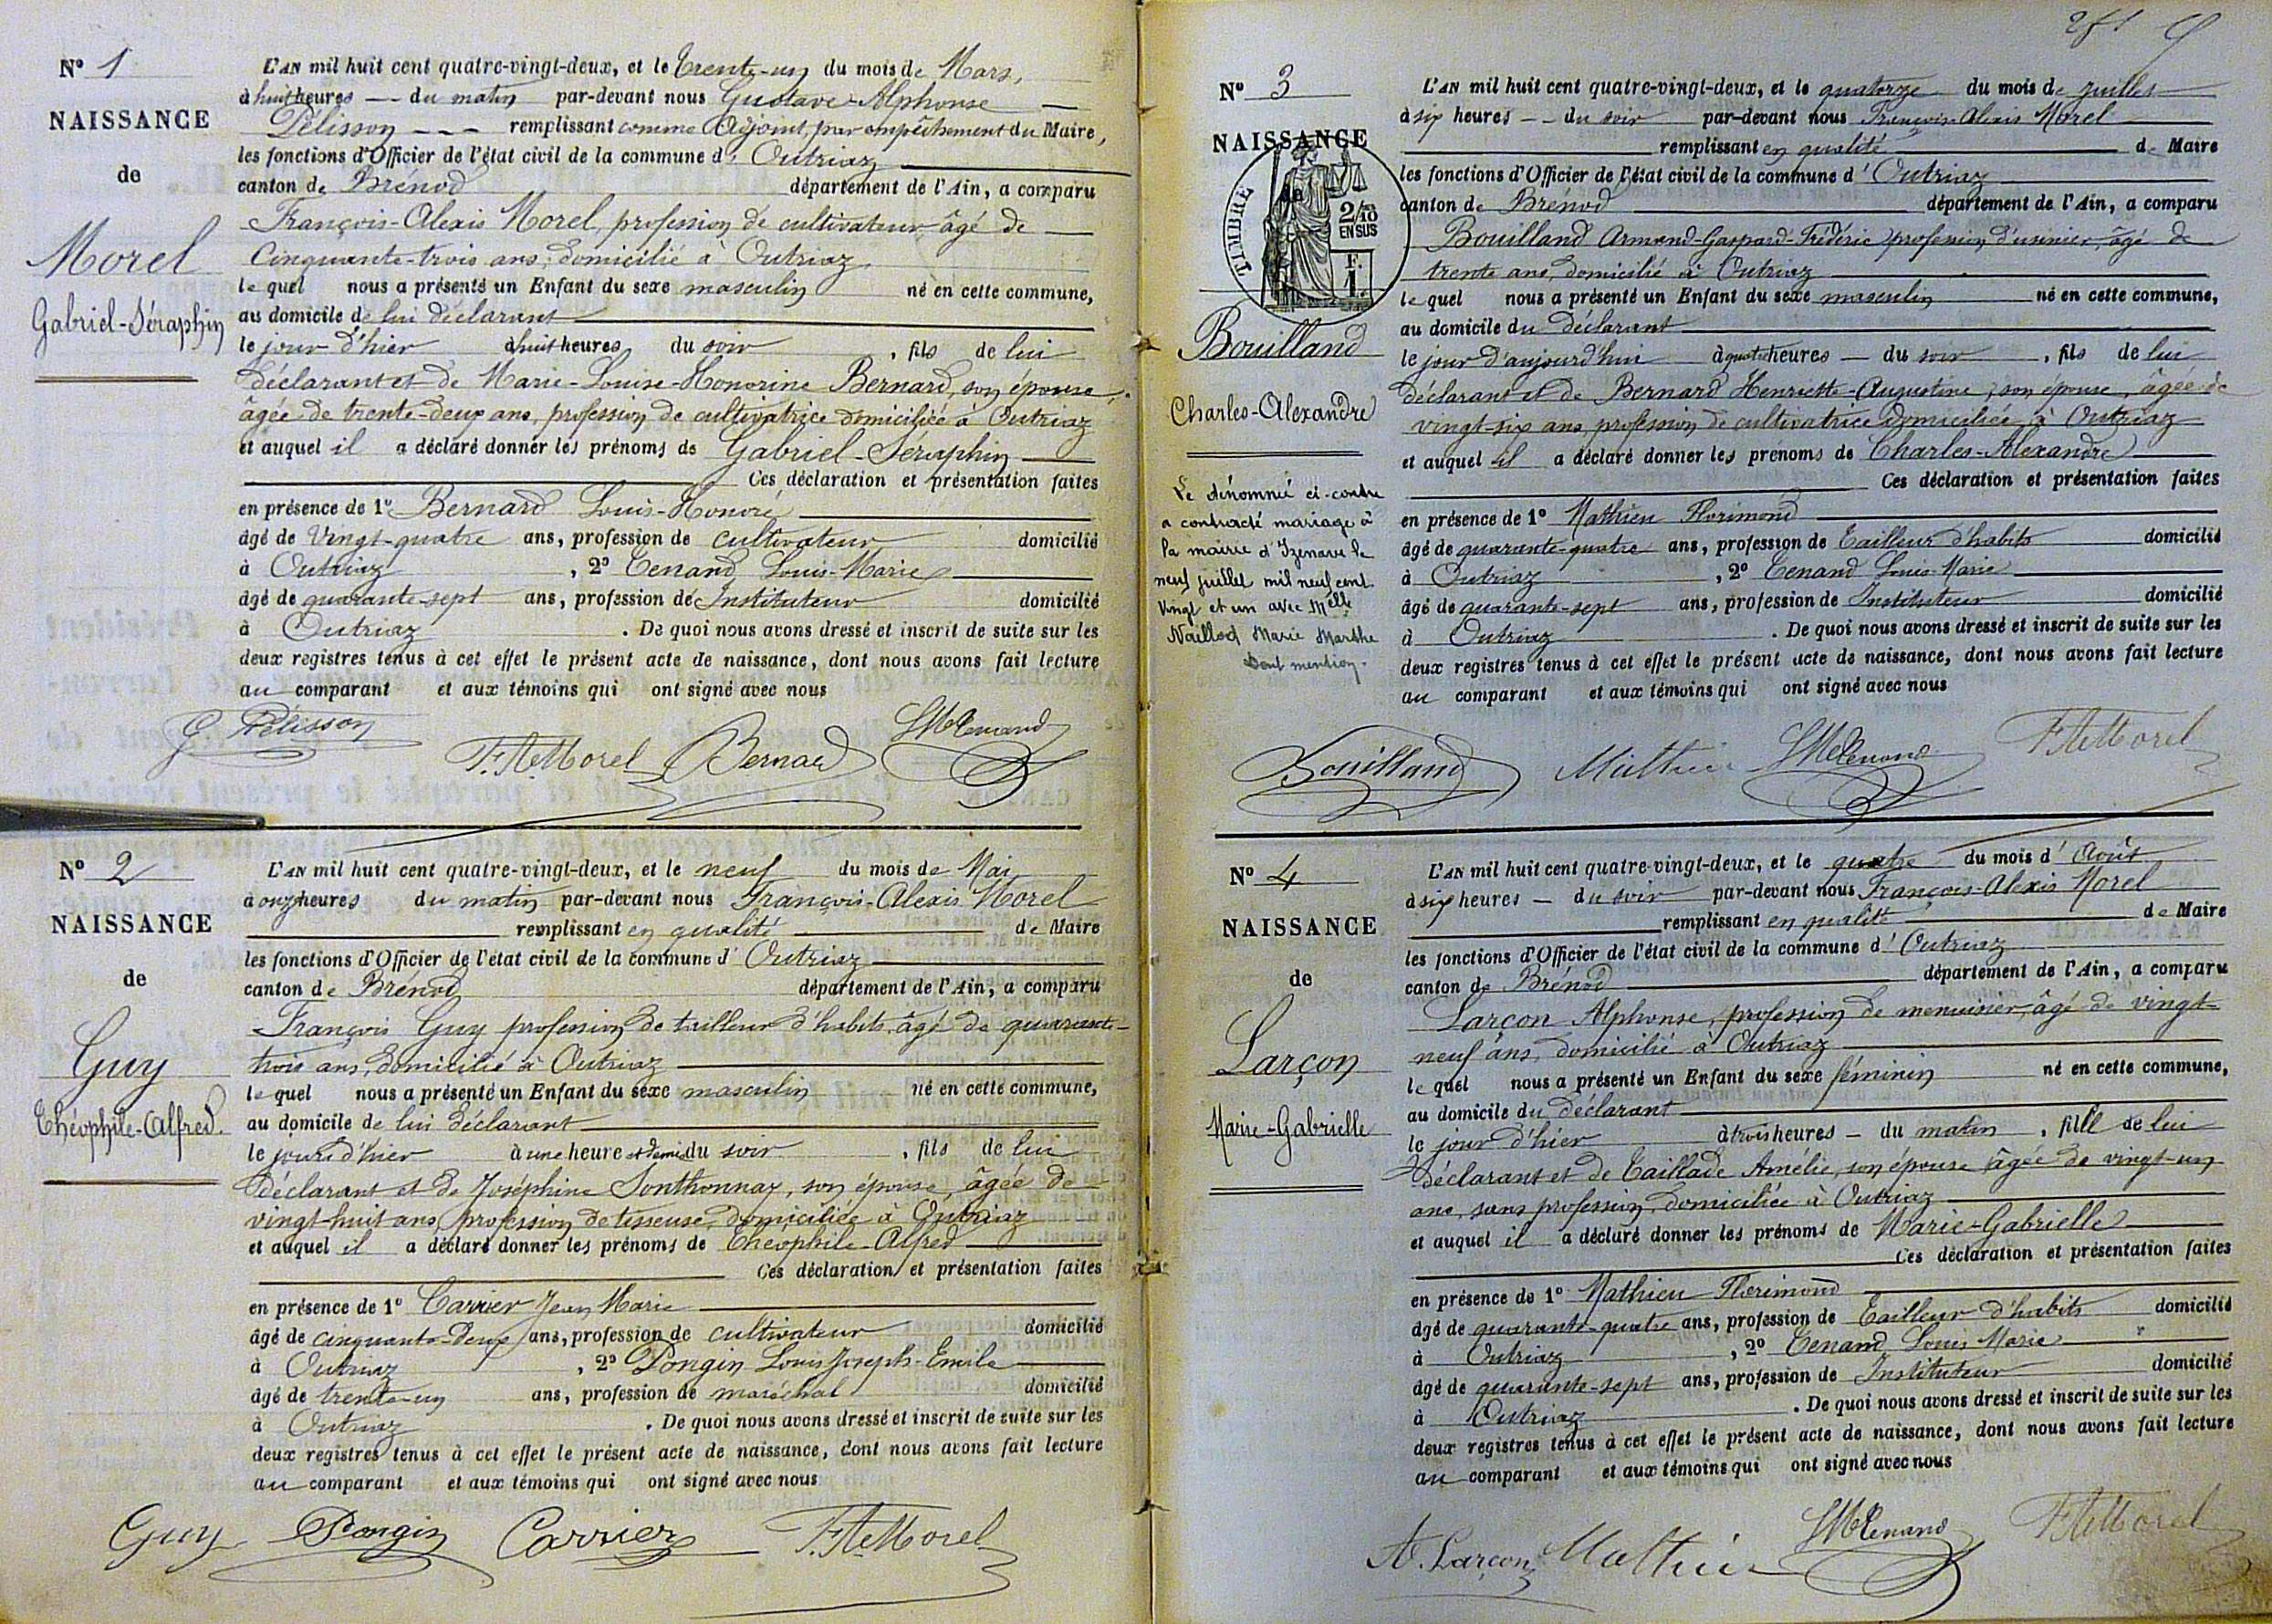 Nº 1
NAISSANCE
de
Morel
Gabriel-Séraphin
L'AN mil huit cent quatre-vingt-deux, et le Trente-un du mois de Mars,
à huit heures du matin par-devant nous Gustave-Alphonse
Pélisson remplissant comme Adjoint, par empêchement du Maire,
les fonctions d'Officier de l'état civil de la commune d' Outriaz
canton de Brénod département de l'Ain, a comparu
François-Alexis Morel, profession de cultivateur âgé de
Cinquante-trois ans, domicilié à Outriaz
lequel nous a présenté un Enfant du sexe masculin né en cette commune,
au domicile de lui déclarant
le jour d'hier à huit heures du soir, fils de lui
déclarant et de Marie-Louise-Honorine Bernard, son épouse,
âgée de trente-deux ans, profession de cultivatrice domiciliée à Outriaz
et auquel il a déclaré donner les prénoms de Gabriel-Séraphin
Ces déclaration et présentation faites
en présence de 1º Bernard Louis-Honoré
âgé de Vingt-quatre ans, profession de cultivateur domicilié
à Outriaz, 2º Tenand Louis-Marie
âgé de quarante-sept ans, profession de Instituteur domicilié
à Outriaz. De quoi nous avons dressé et inscrit de suite sur les
deux registres tenus à cet effet le présent acte de naissance, dont nous avons fait lecture
au comparant et aux témoins qui ont signé avec nous
G. Pélisson F. A. Morel Bernard LM Tenand
Nº 2
NAISSANCE
de
Guy
Théophile-Alfred.
L'AN mil huit cent quatre-vingt-deux, et le neuf du mois de Mai
à onze heures du matin par-devant nous François-Alexis Morel
remplissant en qualité de Maire
les fonctions d'Officier de l'état civil de la commune d' Outriaz
canton de Brénod département de l'Ain, a comparu
François Guy profession de tailleur d'habits, âgé de quarante-
trois ans, domicilié à Outriaz
lequel nous a présenté un Enfant du sexe masculin né en cette commune,
au domicile de lui déclarant
le jour d'hier à une heure et demie du soir, fils de lui
déclarant et de Joséphine Sonthonnaz, son épouse, âgée de
vingt-huit ans, profession de tisseuse, domiciliée à Outriaz
et auquel il a déclaré donner les prénoms de Théophile-Alfred
Ces déclaration et présentation faites
en présence de 1º Carrier Jean Marie
âgé de cinquante-deux ans, profession de cultivateur domicilié
à Outriaz, 2º Pongin Louis Joseph-Emile
âgé de trente-un ans, profession de maréchal domicilié
à Outriaz. De quoi nous avons dressé et inscrit de suite sur les
deux registres tenus à cet effet le présent acte de naissance, dont nous avons fait lecture
au comparant et aux témoins qui ont signé avec nous
Guy Pongin Carrier F. A. Morel
Nº 3
NAISSANCE
TIMBRE
2/10
EN SUS
1 F.
Bouilland
Charles-Alexandre
Le dénommé ci-contre
a contracté mariage à
la mairie d'Izenave le
neuf juillet mil neuf cent
vingt et un avec Melle
Marie Marthe
Dont mention.
L'AN mil huit cent quatre-vingt-deux, et le quatorze du mois de juillet
à six heures du soir par-devant nous François-Alexis Morel
remplissant en qualité de Maire
les fonctions d'Officier de l'état civil de la commune d' Outriaz
canton de Brénod département de l'Ain, a comparu
Bouilland Armand-Gaspard-Frédéric profession d'usinier, âgé de
trente ans, domicilié à Outriaz
lequel nous a présenté un Enfant du sexe masculin né en cette commune,
au domicile du déclarant
le jour d'aujourd'hui à quatre heures du soir, fils de lui
déclarant et de Bernard Henriette-Augustine, son épouse, âgée de
vingt-six ans profession de cultivatrice domiciliée à Outriaz
et auquel il a déclaré donner les prénoms de Charles-Alexandre
Ces déclaration et présentation faites
en présence de 1º Mathieu Florimond
âgé de quarante-quatre ans, profession de Tailleur d'habits domicilié
à Outriaz, 2º Tenand Louis Marie
âgé de quarante-sept ans, profession de Instituteur domicilié
à Outriaz. De quoi nous avons dressé et inscrit de suite sur les
deux registres tenus à cet effet le présent acte de naissance, dont nous avons fait lecture
au comparant et aux témoins qui ont signé avec nous
Bouilland Mathieu LM Tenand F. A. Morel
Nº 4
NAISSANCE
de
Larçon
Marie-Gabrielle
L'AN mil huit cent quatre-vingt-deux, et le quatre du mois d' Août
à six heures du soir par-devant nous François-Alexis Morel
remplissant en qualité de Maire
les fonctions d'Officier de l'état civil de la commune d' Outriaz
canton de Brénod département de l'Ain, a comparu
Larçon Alphonse, profession de menuisier, âgé de vingt-
neuf ans, domicilié à Outriaz
lequel nous a présenté un Enfant du sexe féminin né en cette commune,
au domicile du déclarant
le jour d'hier à trois heures du matin, fille de lui
déclarant et de Taillade Amélie, son épouse âgée de vingt-un
ans, sans profession, domiciliée à Outriaz
et auquel il a déclaré donner les prénoms de Marie-Gabrielle
Ces déclaration et présentation faites
en présence de 1º Mathieu Florimond
âgé de quarante-quatre ans, profession de Tailleur d'habits domicilié
à Outriaz, 2º Tenand Louis Marie
âgé de quarante-sept ans, profession de Instituteur domicilié
à Outriaz. De quoi nous avons dressé et inscrit de suite sur les
deux registres tenus à cet effet le présent acte de naissance, dont nous avons fait lecture
au comparant et aux témoins qui ont signé avec nous
A. Larçon Mathieu LM Tenand F. A. Morel